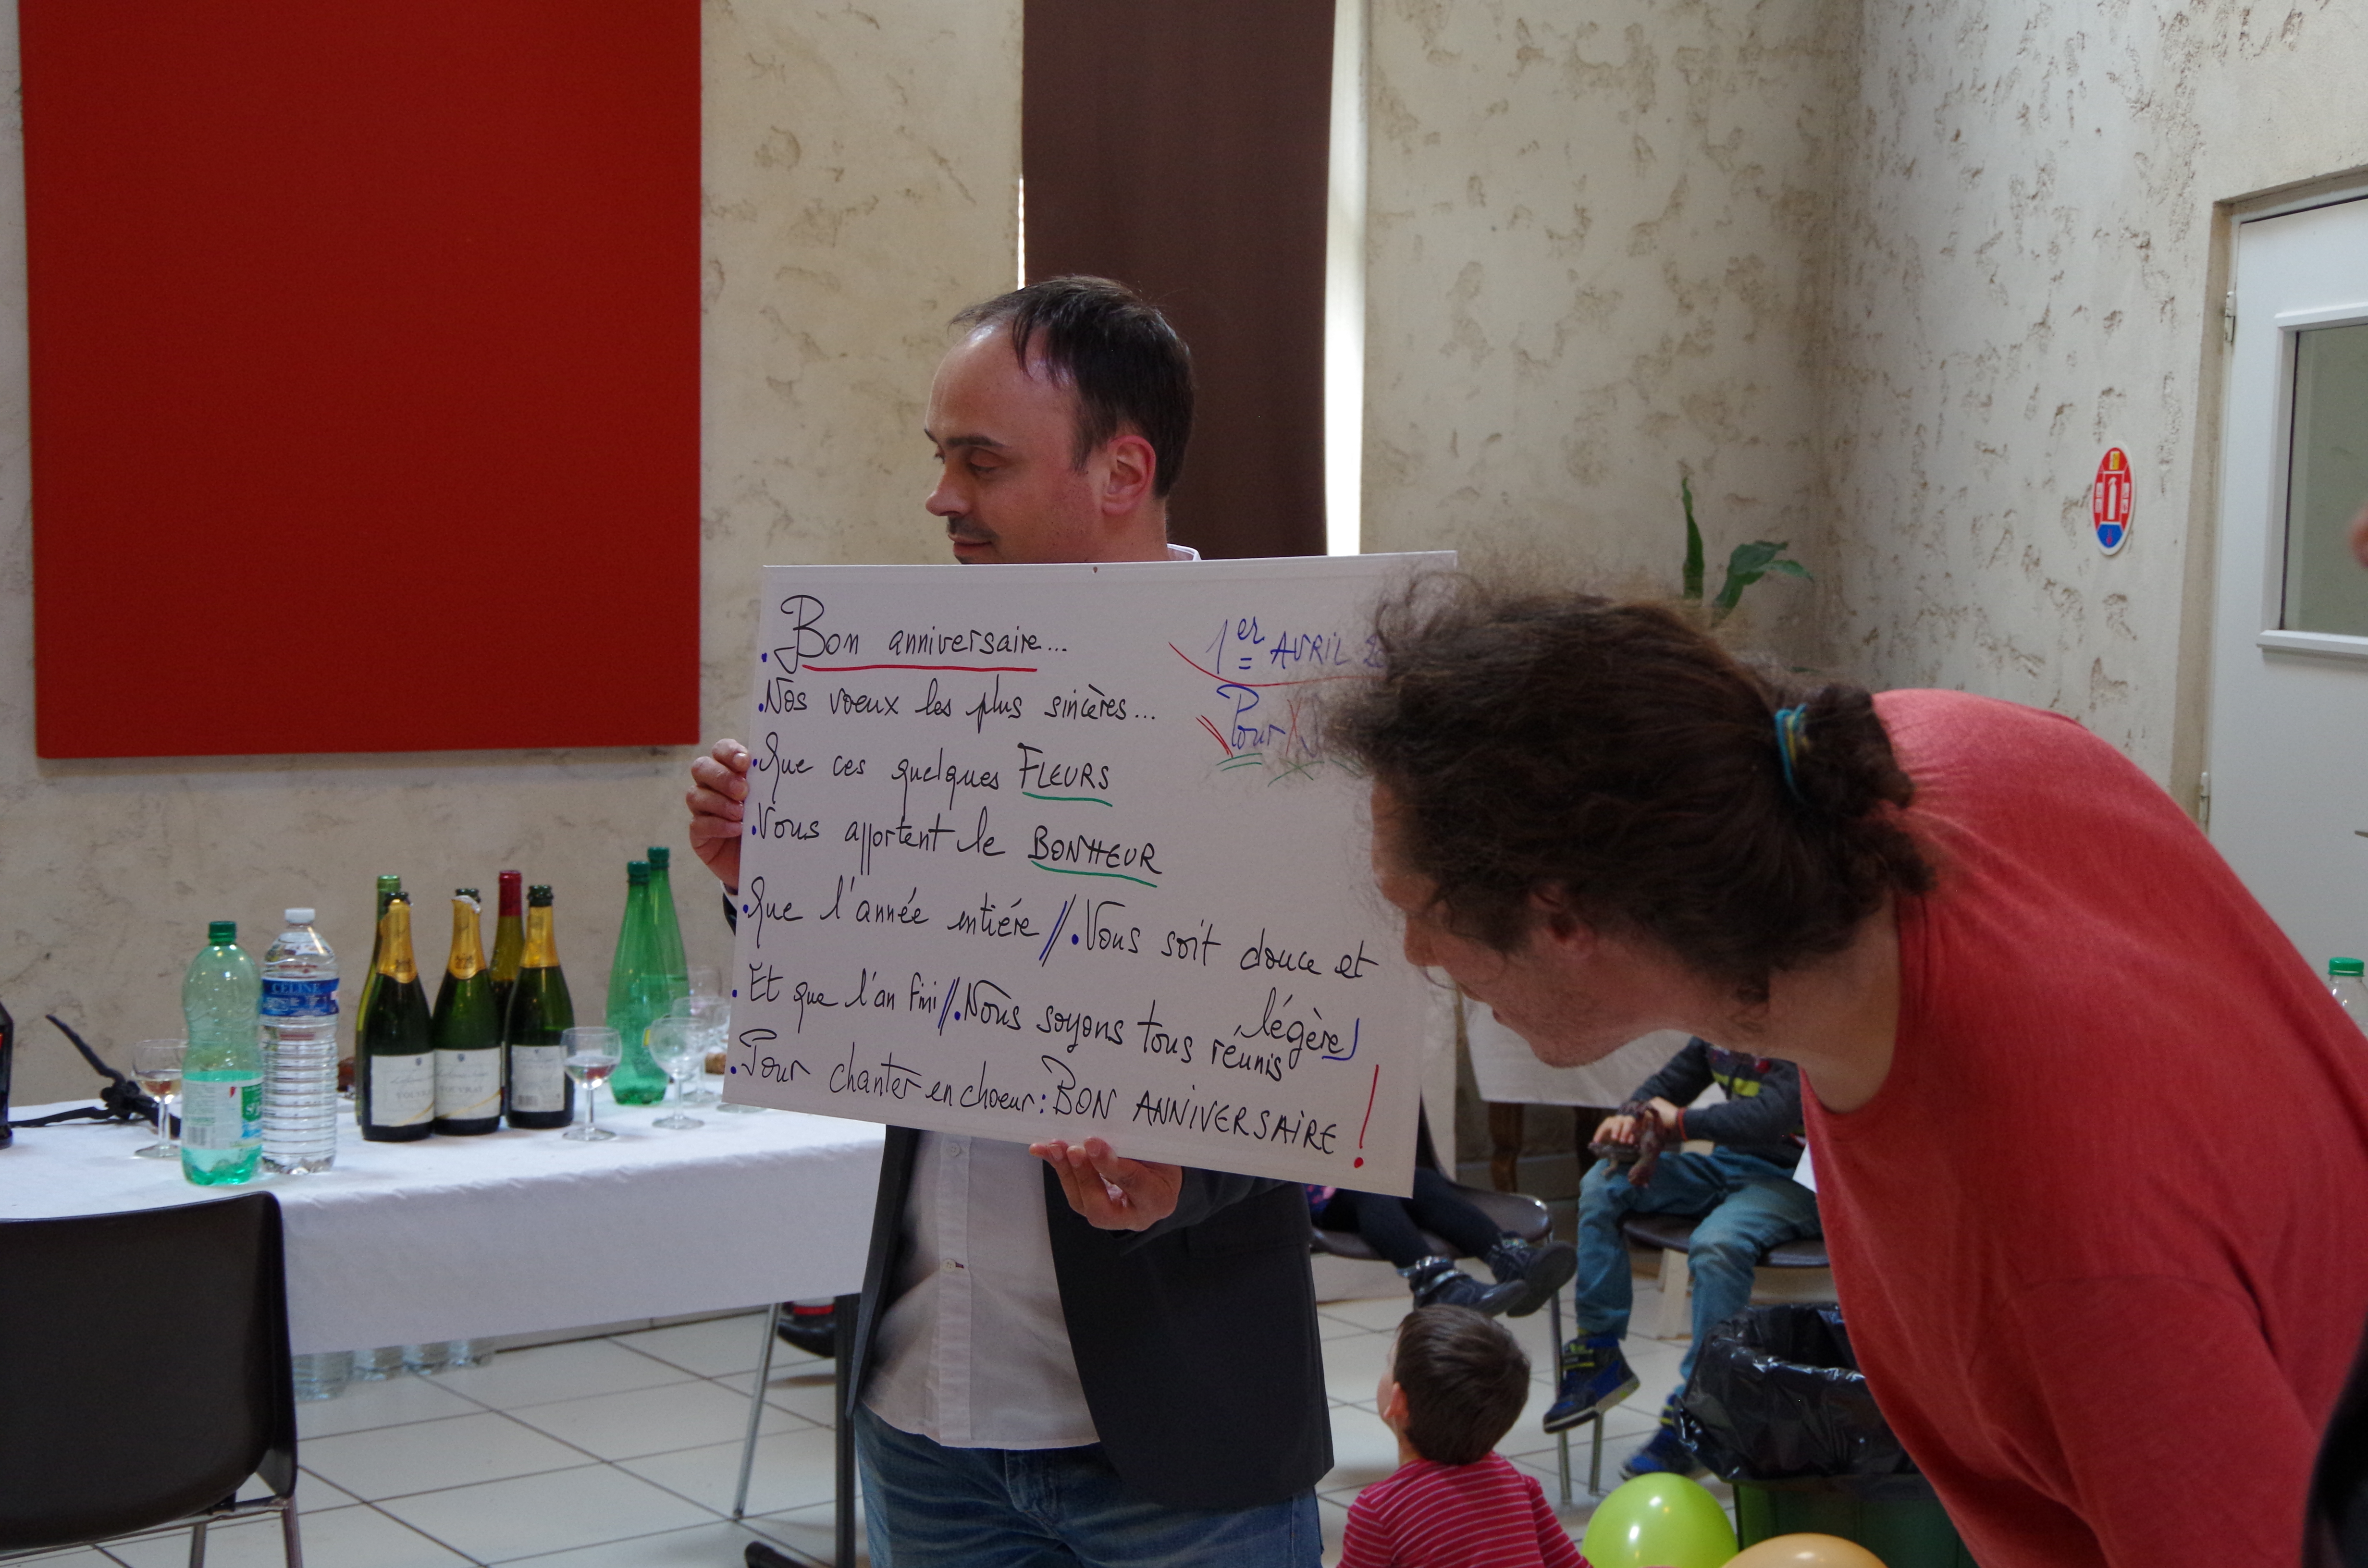 Bon anniversaire...
1er AVRIL
Nos vœux les plus sincères...
Pour
Que ces quelques FLEURS
Vous apportent le BONHEUR
Que l'année entiére // Vous soit douce et
légère
Et que l'an fini // Nous soyons tous réunis
Pour chanter en choeur : BON ANNIVERSAIRE !
CELINE